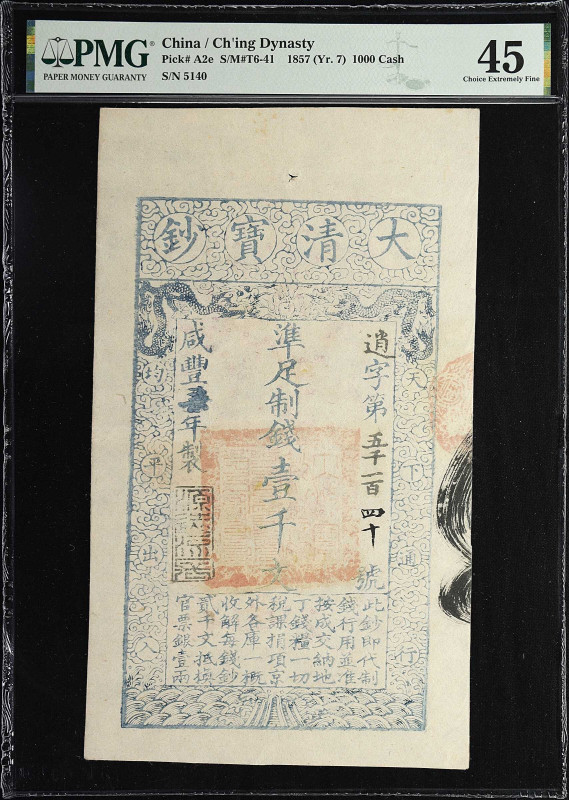 PMG
PAPER MONEY GUARANTY
China / Ch'ing Dynasty
Pick# A2e S/M#T6-41 1857 (Yr. 7) 1000 Cash
S/N 5140
45
Choice Extremely Fine
大清寶鈔
天下通行
均平出入
逍字第五千一百四十號
準足制錢壹千文
咸豐年製
此鈔即代制
錢行用並准
按成交納地
丁錢糧一切
稅課捐項京
外各庫一概
收解每錢鈔
貳千文抵換
官票銀壹兩